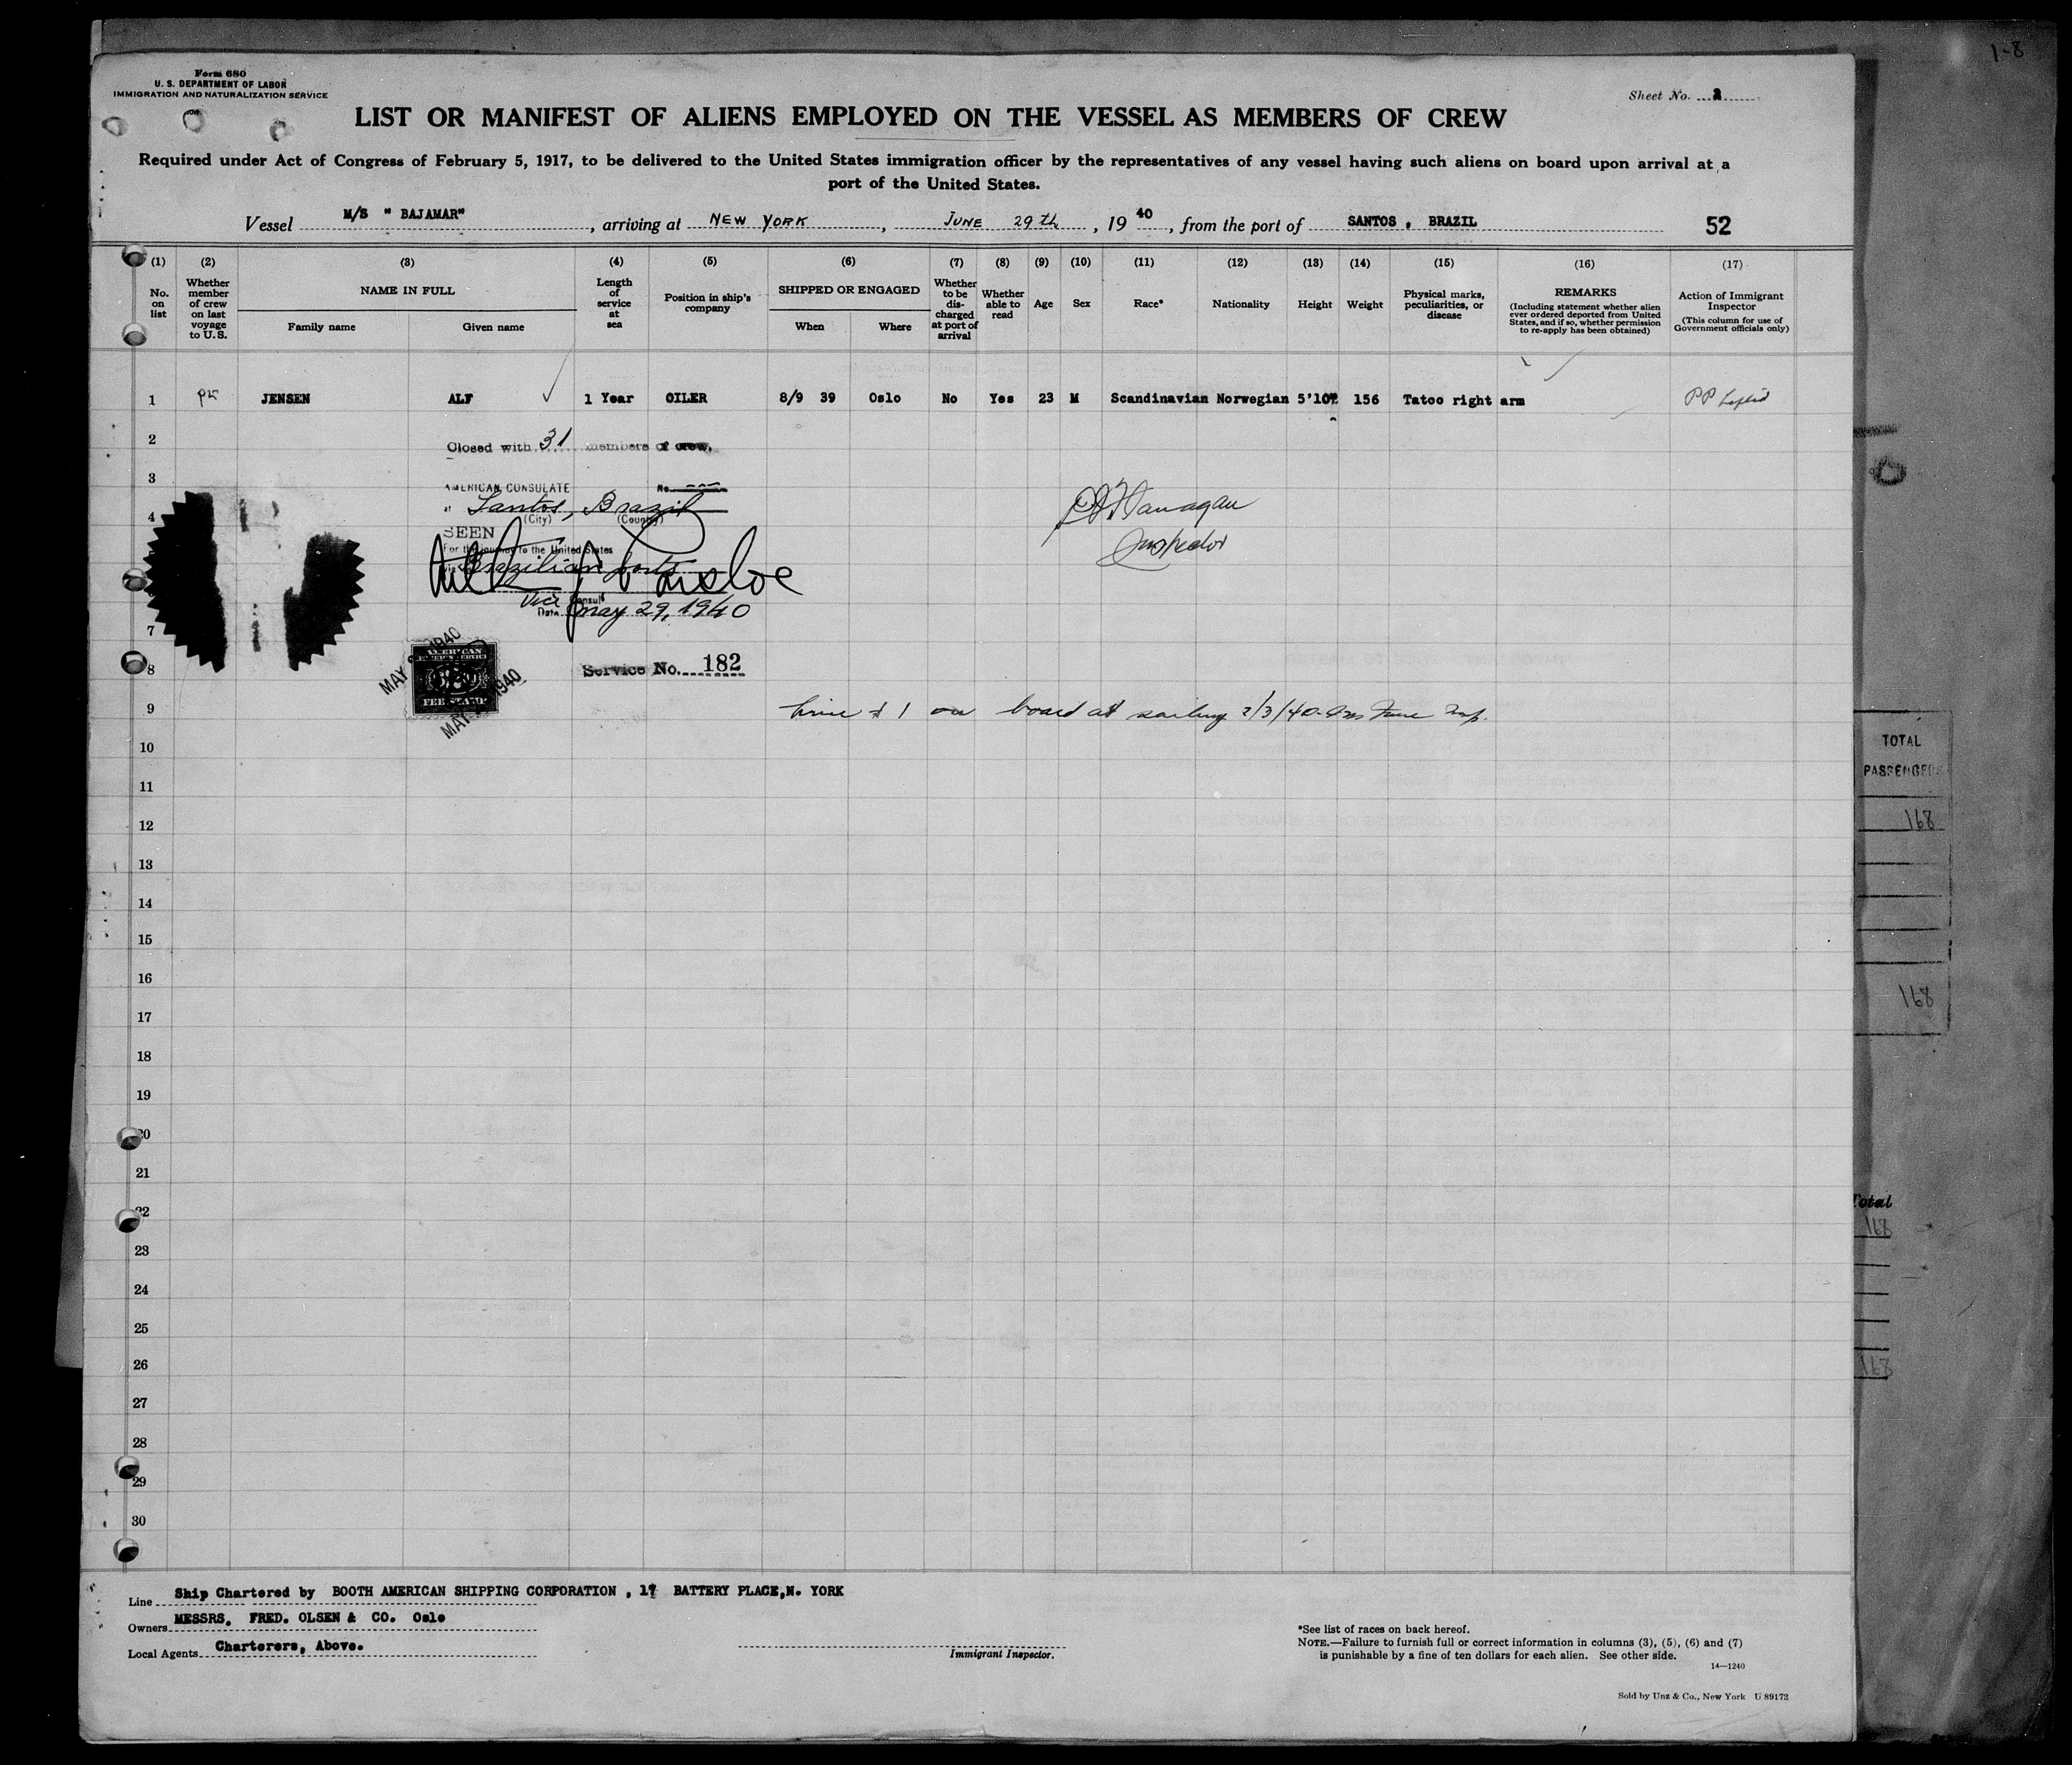 1-8
Form 680
U. S. DEPARTMENT OF LABOR
IMMIGRATION AND NATURALIZATION SERVICE
Sheet No. 2
LIST OR MANIFEST OF ALIENS EMPLOYED ON THE VESSEL AS MEMBERS OF CREW
Required under Act of Congress of February 5, 1917, to be delivered to the United States immigration officer by the representatives of any vessel having such aliens on board upon arrival at a
port of the United States.
Vessel M/S " BAJAMAR" , arriving at NEW YORK , JUNE 29th , 19 40 , from the port of SANTOS , BRAZIL 52
(1) No. on list
(2) Whether member of crew on last voyage to U.S.
(3) NAME IN FULL
Family name Given name
(4) Length of service at sea
(5) Position in ship's company
(6) SHIPPED OR ENGAGED
When Where
(7) Whether to be discharged at port of arrival
(8) Whether able to read
(9) Age
(10) Sex
(11) Race*
(12) Nationality
(13) Height
(14) Weight
(15) Physical marks, peculiarities, or disease
(16) REMARKS
(Including statement whether alien ever ordered deported from United States, and if so, whether permission to re-apply has been obtained)
(17) Action of Immigrant Inspector
(This column for use of Government officials only)
1 JENSEN ALF 1 Year OILER 8/9 39 Oslo No Yes 23 M Scandinavian Norwegian 5'10 156 Tatoo right arm PP
2 Closed with 31 members of crew.
3 AMERICAN CONSULATE No.
4 at Santos, Brazil
(City) (Country)
SEEN
For the journey to the United States
Brazilian ports
Vice Consul
Date May 29, 1940
Flanagan
Inspector
7
8 Service No. 182
AMERICAN
FOREIGN SERVICE
FEE STAMP
MAY 1940
MAY 1940
9 Line # 1 on board at sailing 2/3/40
10
11
12
13
14
15
16
17
18
19
20
21
22
23
24
25
26
27
28
29
30
Line Ship Chartered by BOOTH AMERICAN SHIPPING CORPORATION , 17 BATTERY PLACE,N. YORK
Owners MESSRS. FRED. OLSEN & CO. Oslo
Local Agents Charterers, Above.
Immigrant Inspector.
*See list of races on back hereof.
NOTE.—Failure to furnish full or correct information in columns (3), (5), (6) and (7)
is punishable by a fine of ten dollars for each alien. See other side.
14—1240
Sold by Unz & Co., New York U 89172
TOTAL
PASSENGERS
168
168
Total
168
168